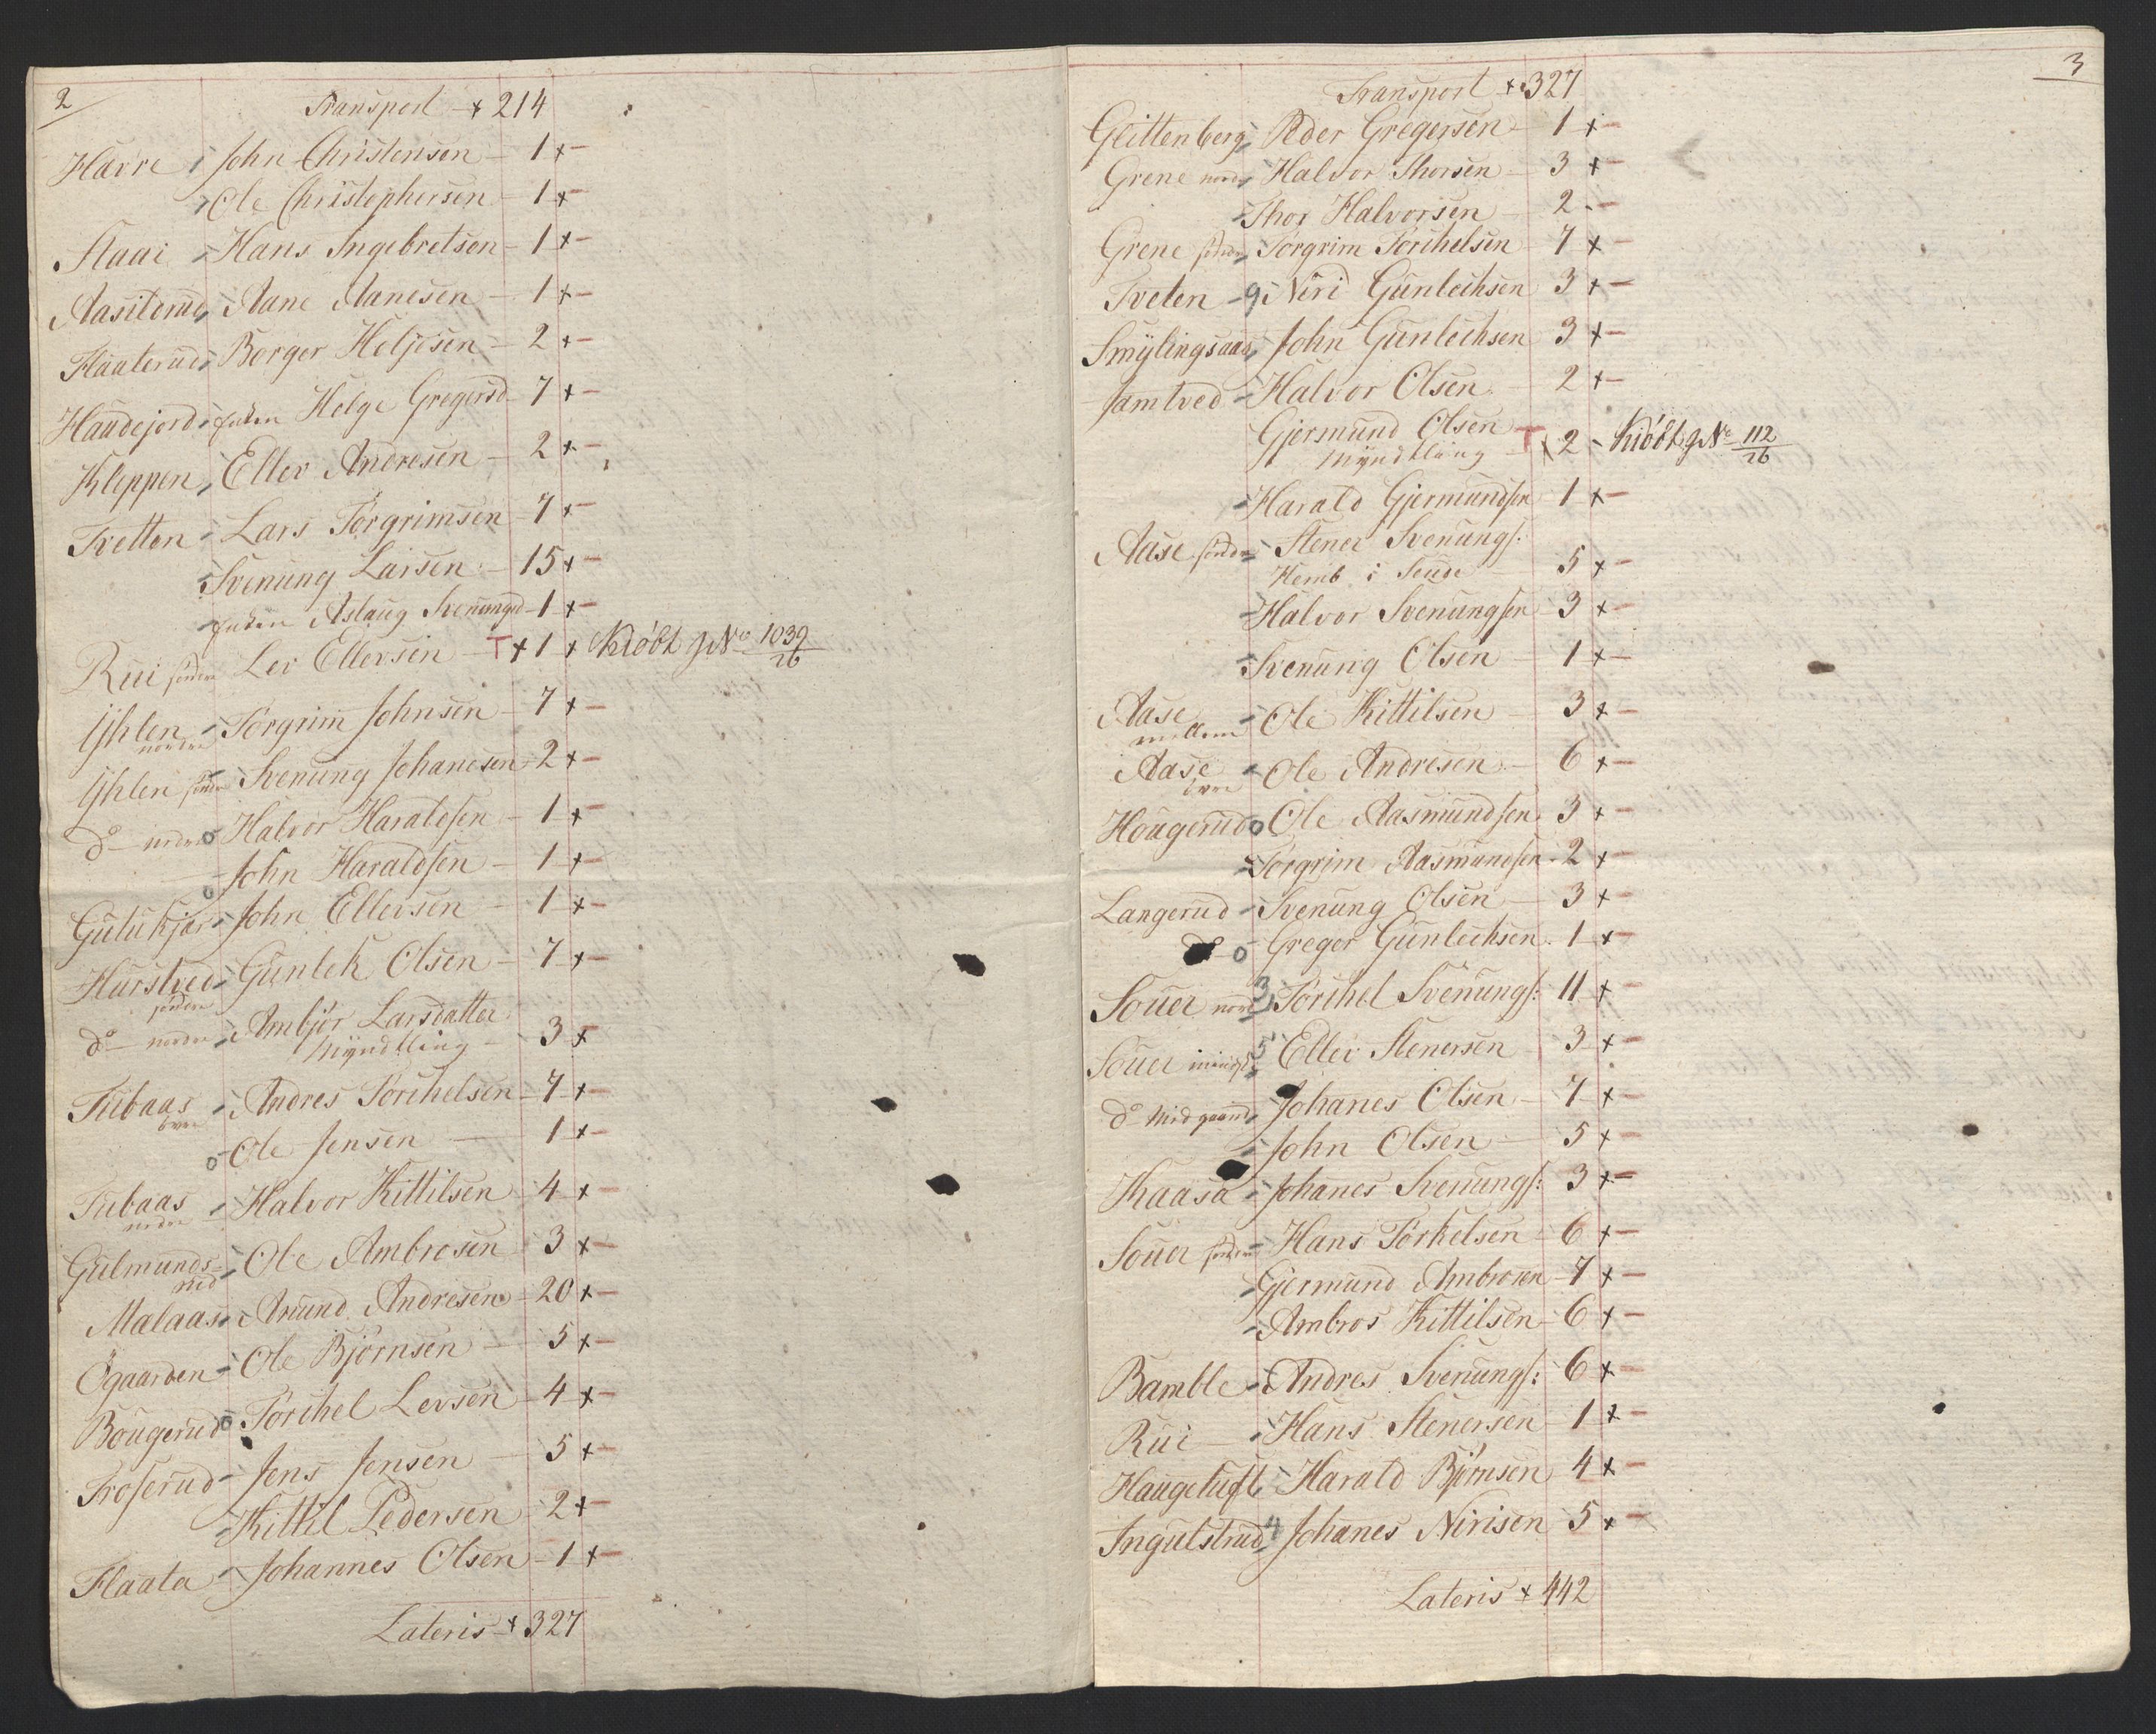 2
Transport x 214
Harre John Christensen 1 x
Ole Christophersen 1 x
Staai Hans Ingebretsen 1 x
Aasiterud Aane Aanesen 1 x
Flaaterud Borger Heljesen 2 x
Haudejord Helge Gregersd 7 x
Kleppen Ellev Andresen 2 x
Tvetten Lars Torgrimsen 7 x
Svenung Larsen 15 x
Aslaug Svenungsd 1 x
Rui søndre Lev Ellevsen T x 1 x Kiöbt No 1039/26
Ijhlen nordre Torgrim Johnsen 7 x
Ijhlen søndre Svenung Johanesen 2 x
do nedre o Halvor Haraldsen 1 x
o John Haraldsen 1 x
Gulukjær John Ellevsen 1 x
Hurstved søndre Gunlek Olsen 7 x
do nordre Ambjør Larsdatter
Myndtling 3 x
Tubaas övre Andres Torchelsen 7 x
o Ole Jensen 1 x
Tubaas nedre Halvor Kittilsen 4 x
Gulmunds-
rud Ole Ambrosen 3 x
Malaas Amund Andresen 20 x
Ögaarden Ole Bjørnsen 5 x
Bougerud o Torchel Levsen 4 x
Troserud Jens Jensen 5 x
Kittil Pedersen 2 x
Flaata Johannes Olsen 1 x
Lateris x 327
3
Transport x 327
Glittenberg Peder Gregersen 1 x
Grene nord Halvor Thorsen 3 x
Thor Halvorsen 2
Grene søndre Torgrim Torchelsen 7 x
Tveten 9 Niri Gunleihsen 3 x
Smylingsaas John Gunleihsen 3 x
Jamtved Halvor Olsen 2 x
Gjermund Olsen
Myndtling T x 2 Kiöbt No 112/26
Harald Gjermundsen 1 x
Aase søndre Stener Svenungs:
Hemb i Seude 5 x
Halvor Svenungsen 3 x
Svenung Olsen 1 x
Aase mellem Ole Kittilsen 3 x
Aase övre Ole Andresen 6 x
Hougerud o Ole Aasmundsen 3 x
Torgrim Aasmundsen 2 x
Langerud Svenung Olsen 3 x
do o Greger Gunleihsen 1 x
Souer nord 3 Torchel Svenungs: 11 x
Souer 5 Ellev Stenersen 3 x
do Midgaard Johanes Olsen 7 x
John Olsen 5 x
Kaasa Johanes Svenungs: 3 x
Souer søndre Hans Torkelsen 6 x
Gjermund Ambrosen 7 x
Ambros Kittilsen 6 x
Bamble Andres Svenungs: 6 x
Rui Hans Stenersen 1 x
Haugetuft Harald Bjørnsen 4 x
Ingulstrud 4 Johanes Nirisen 5 x
Lateris x 442